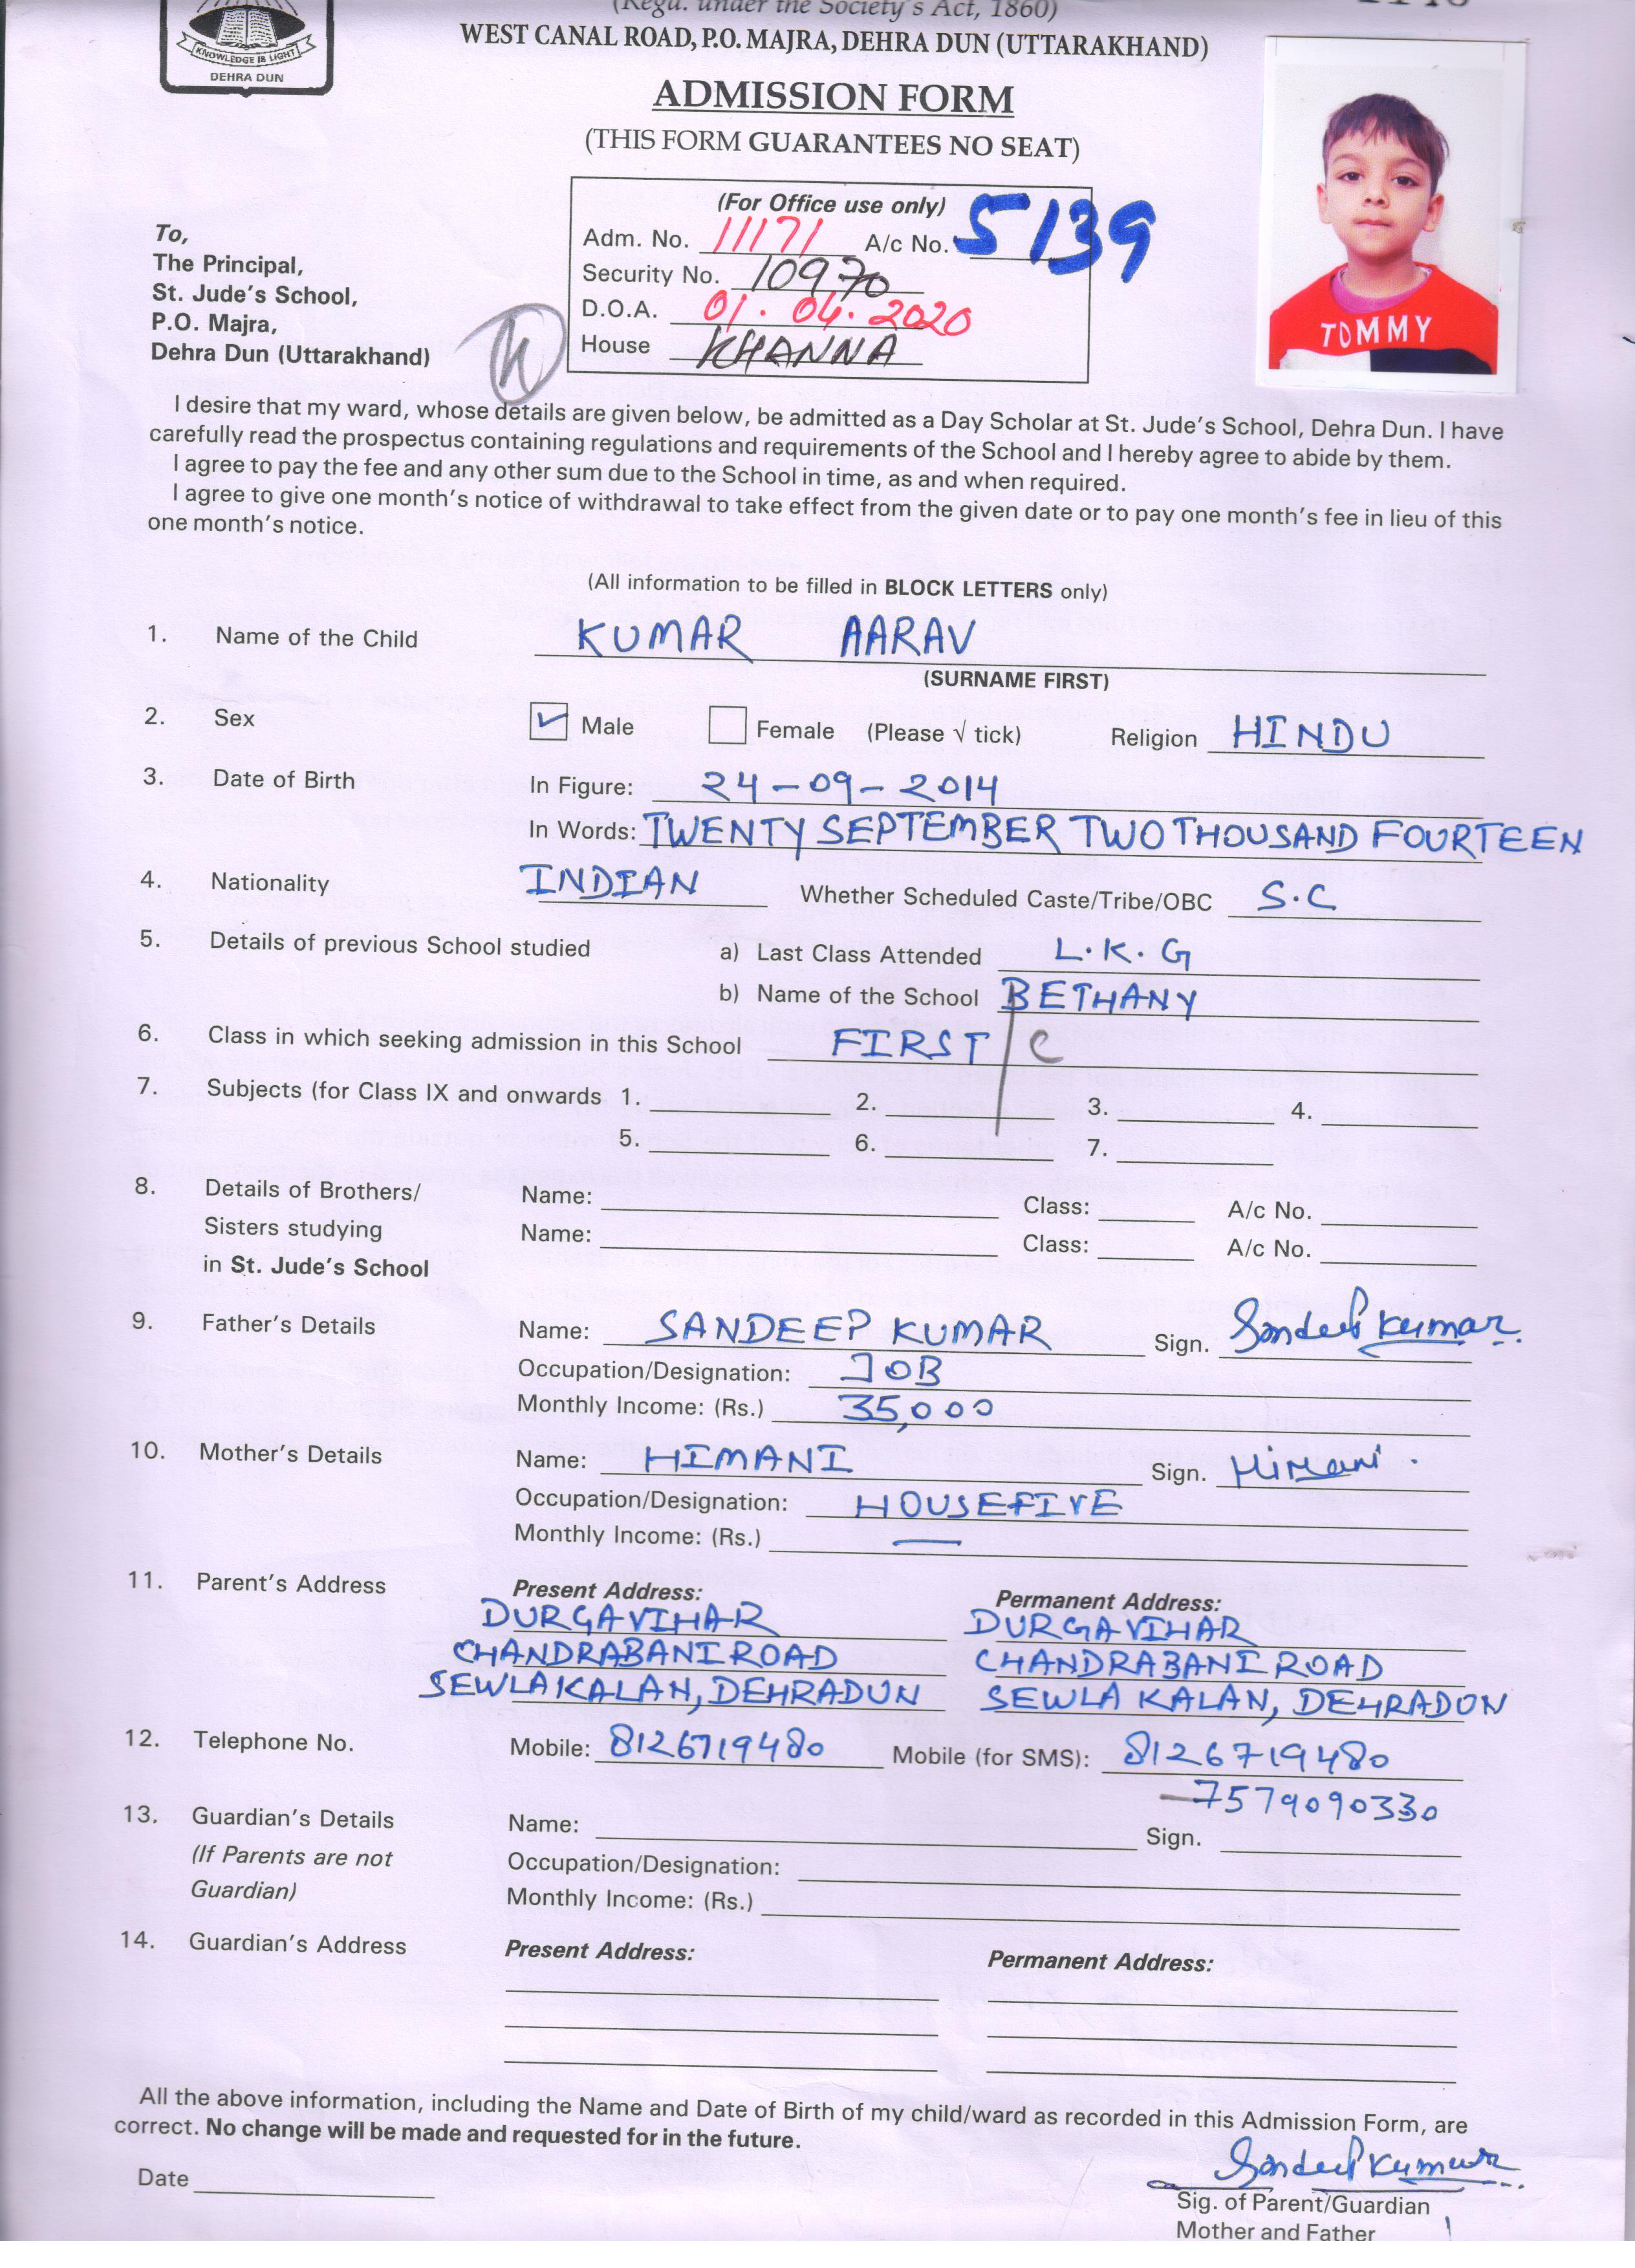 (Regd. under the Society's Act, 1860)
WEST CANAL ROAD, P.O. MAJRA, DEHRA DUN (UTTARAKHAND)
KNOWLEDGE IS LIGHT
DEHRA DUN
ADMISSION FORM
(THIS FORM GUARANTEES NO SEAT)
TOMMY
(For Office use only)
Adm. No. 11171 A/c No. 5139
Security No. 10970
D.O.A. 01.04.2020
House KHANNA
To,
The Principal,
St. Jude's School,
P.O. Majra,
Dehra Dun (Uttarakhand)
I desire that my ward, whose details are given below, be admitted as a Day Scholar at St. Jude's School, Dehra Dun. I have
carefully read the prospectus containing regulations and requirements of the School and I hereby agree to abide by them.
I agree to pay the fee and any other sum due to the School in time, as and when required.
I agree to give one month's notice of withdrawal to take effect from the given date or to pay one month's fee in lieu of this
one month's notice.
(All information to be filled in BLOCK LETTERS only)
1. Name of the Child KUMAR AARAV
(SURNAME FIRST)
2. Sex Male Female (Please √ tick) Religion HINDU
3. Date of Birth In Figure: 24-09-2014
In Words: TWENTY SEPTEMBER TWO THOUSAND FOURTEEN
4. Nationality INDIAN Whether Scheduled Caste/Tribe/OBC S.C
5. Details of previous School studied a) Last Class Attended L.K.G
b) Name of the School BETHANY
6. Class in which seeking admission in this School FIRST / C
7. Subjects (for Class IX and onwards 1. 2. 3. 4.
5. 6. 7.
8. Details of Brothers/ Name: Class: A/c No.
Sisters studying Name: Class: A/c No.
in St. Jude's School
9. Father's Details Name: SANDEEP KUMAR Sign. Sandeep Kumar
Occupation/Designation: JOB
Monthly Income: (Rs.) 35,000
10. Mother's Details Name: HIMANI Sign. Himani
Occupation/Designation: HOUSEFIVE
Monthly Income: (Rs.) —
11. Parent's Address Present Address: Permanent Address:
DURGA VIHAR DURGA VIHAR
CHANDRABANI ROAD CHANDRABANI ROAD
SEWLA KALAN, DEHRADUN SEWLA KALAN, DEHRADUN
12. Telephone No. Mobile: 8126719480 Mobile (for SMS): 8126719480
7579090330
13. Guardian's Details Name: Sign.
(If Parents are not Occupation/Designation:
Guardian) Monthly Income: (Rs.)
14. Guardian's Address Present Address: Permanent Address:
All the above information, including the Name and Date of Birth of my child/ward as recorded in this Admission Form, are
correct. No change will be made and requested for in the future.
Sandeep Kumar
Date
Sig. of Parent/Guardian
Mother and Father